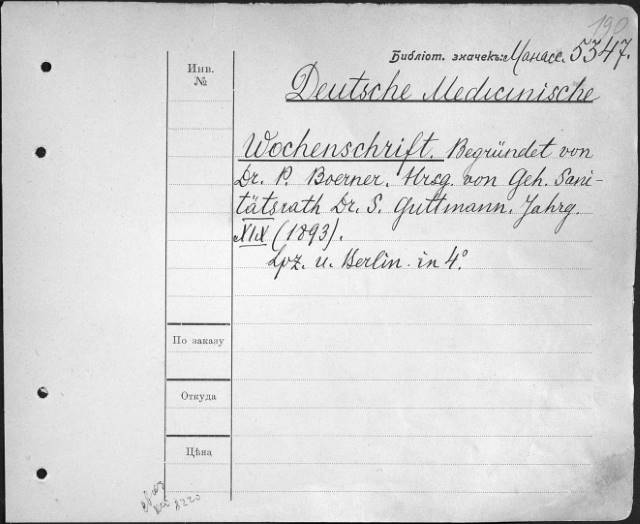 190
Библіот. значекъ: Манасс. 5347.
Инв.
№
Deutsche Medicinische
Wochenschrift. Begründet von
Dr. P. Boerner. Hrsg. von Geh. Sani-
tätsrath Dr. S. Guttmann. Jahrg.
XIX (1893).
Lpz. u. Berlin. in 4°.
По заказу
Откуда
Цѣна
8220